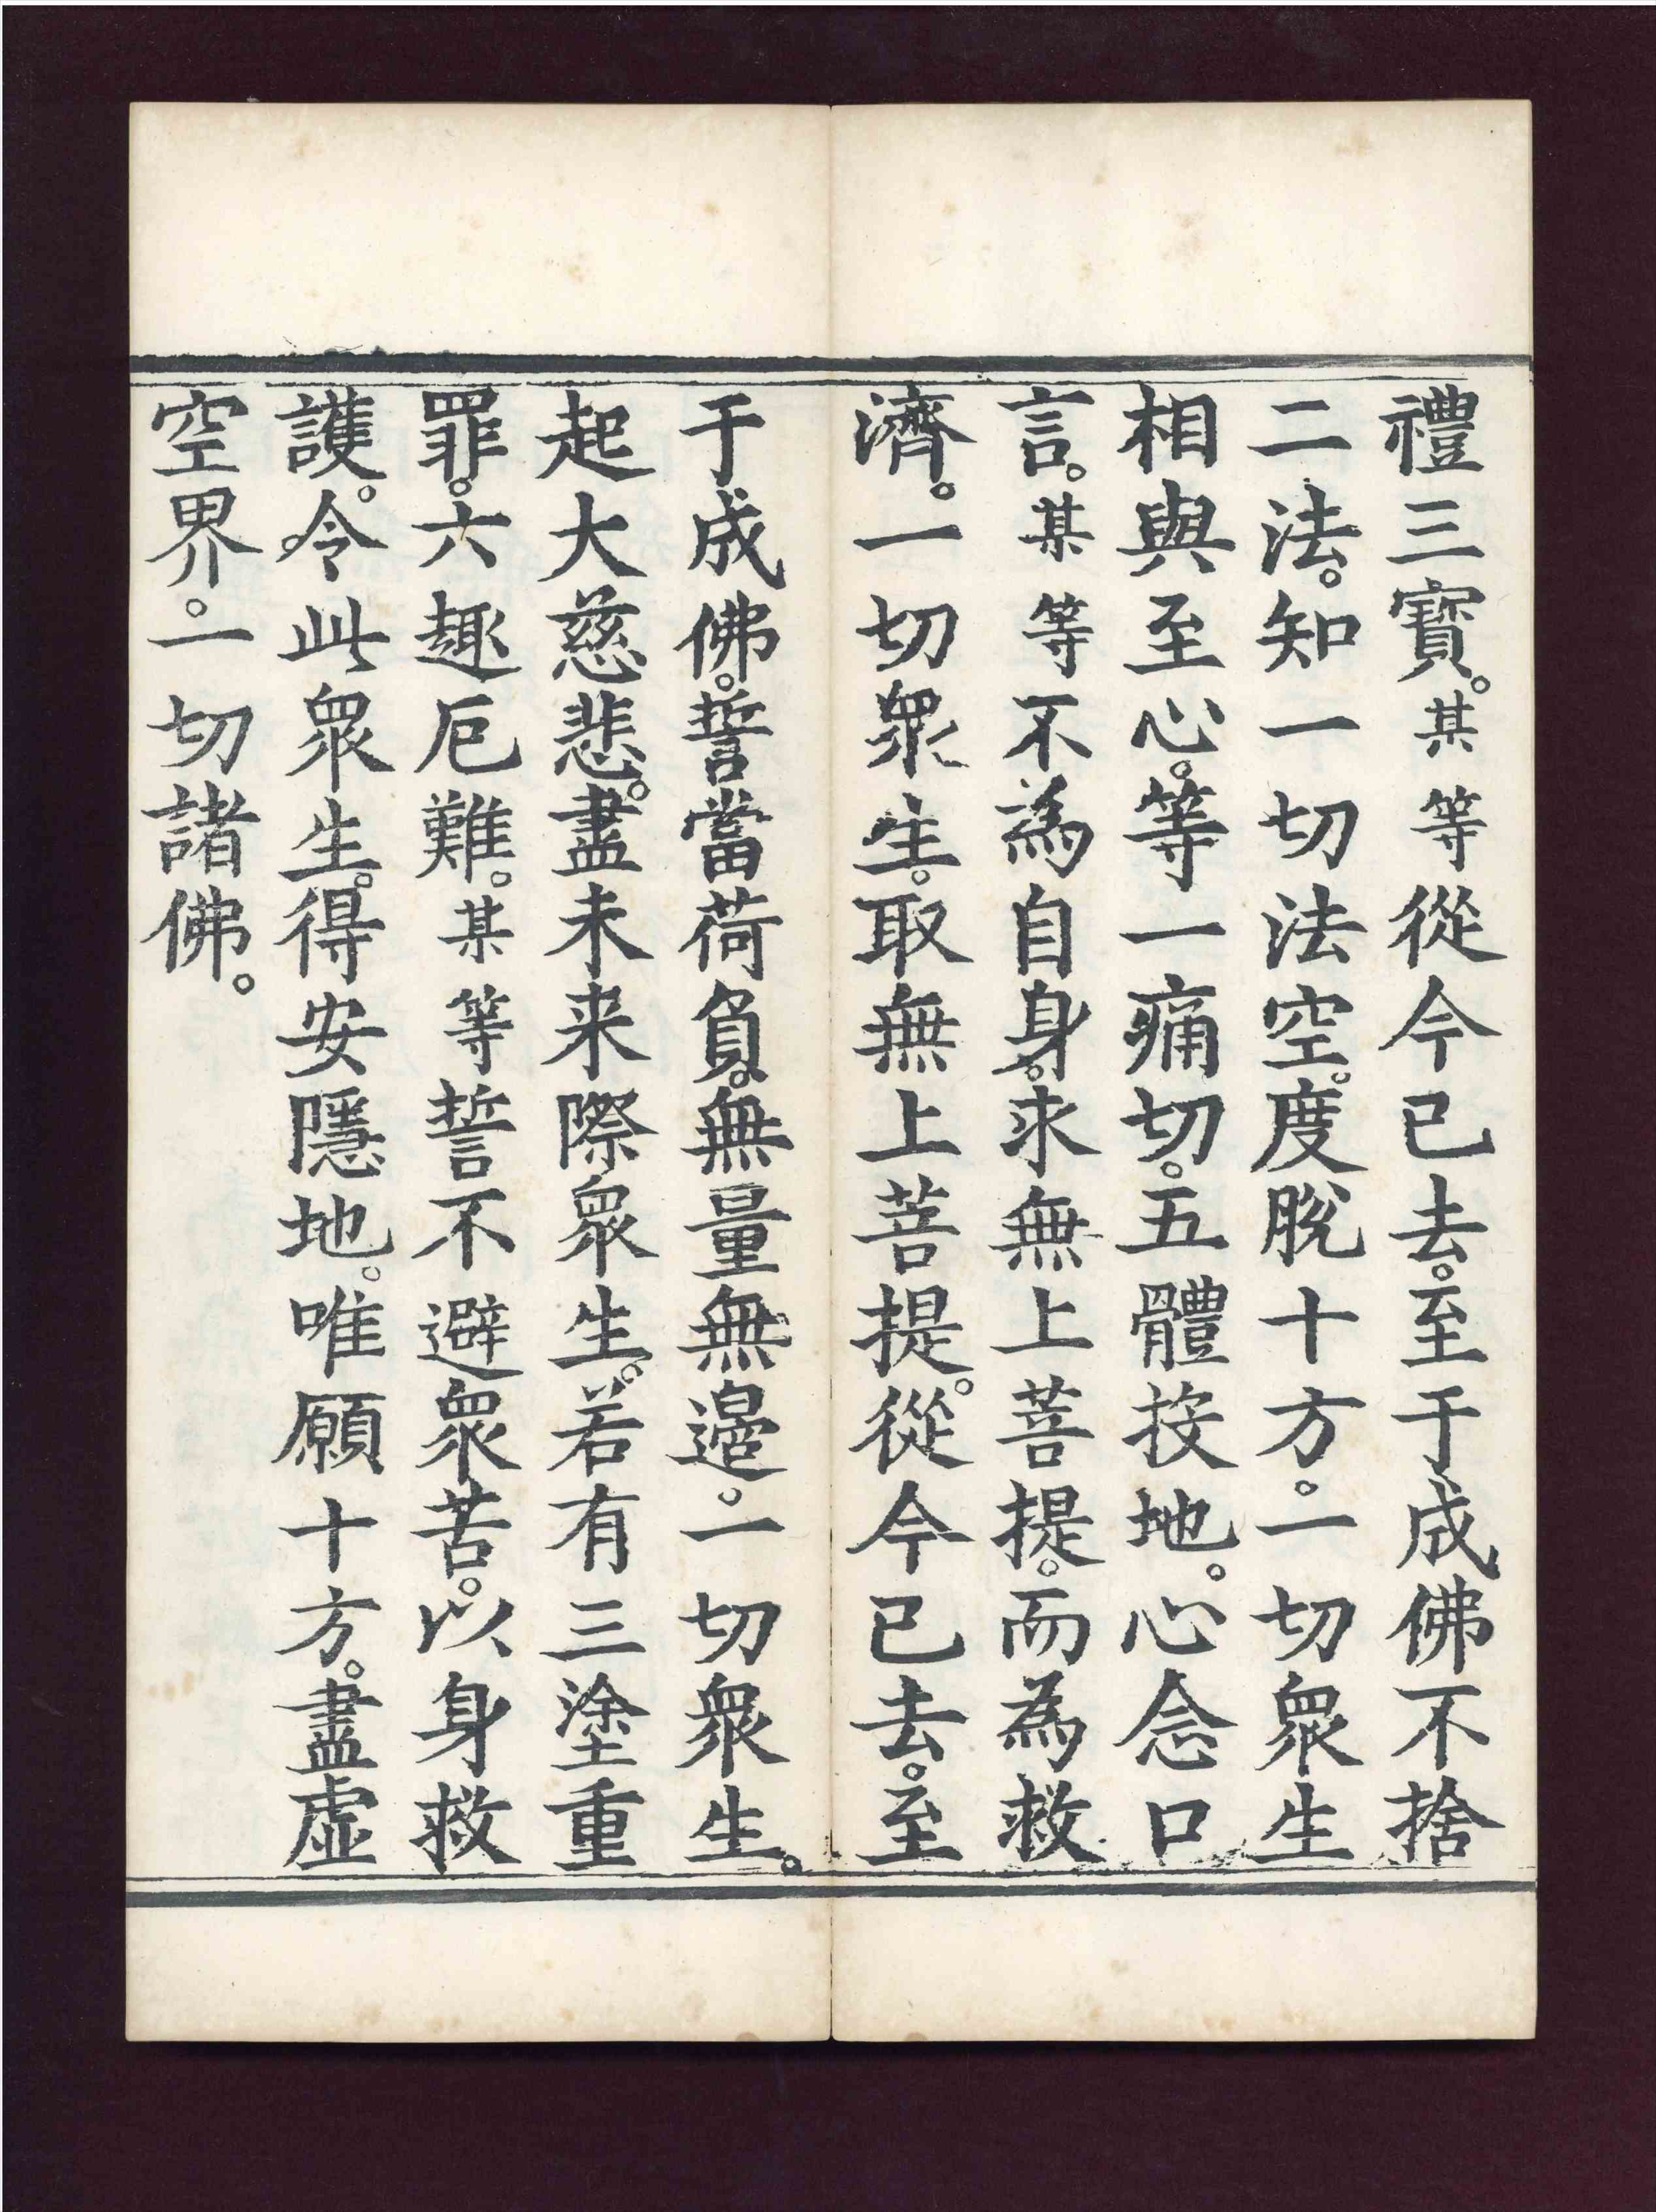 禮三寶。某等從今已去。至于成佛不捨
二法。知一切法空。度脫十方。一切眾生
相與至心。等一痛切。五體投地。心念口
言。某等不為自身。求無上菩提。而為救
濟。一切眾生。取無上菩提。從今已去。至
于成佛。誓當荷負。無量無邊。一切眾生。
起大慈悲。盡未来際眾生。若有三塗重
罪。六趣厄難。某等誓不避眾苦。以身救
護。令此眾生。得安隱地。唯願十方。盡虛
空界。一切諸佛。